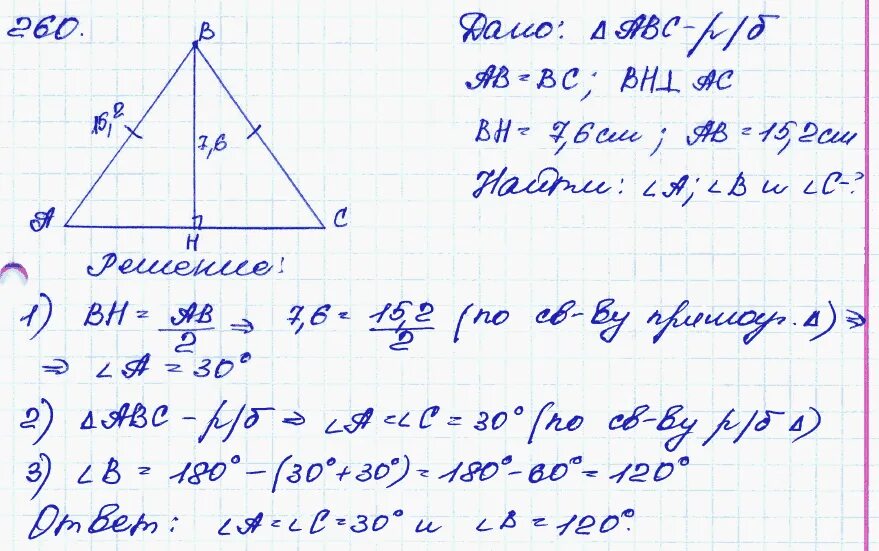 260.
Дано: △ABC - р/б
AB = BC; BH ⊥ AC
BH = 7,6 см; AB = 15,2 см
Найти: ∠A; ∠B и ∠C-?
B
15,2
7,6
A
H
C
Решение:
1) BH = AB/2 ⇒ 7,6 = 15,2/2 (по св-ву прямоуг. △) ⇒
⇒ ∠A = 30°
2) △ABC - р/б ⇒ ∠A = ∠C = 30° (по св-ву р/б △)
3) ∠B = 180° - (30° + 30°) = 180° - 60° = 120°
Ответ: ∠A = ∠C = 30° и ∠B = 120°.